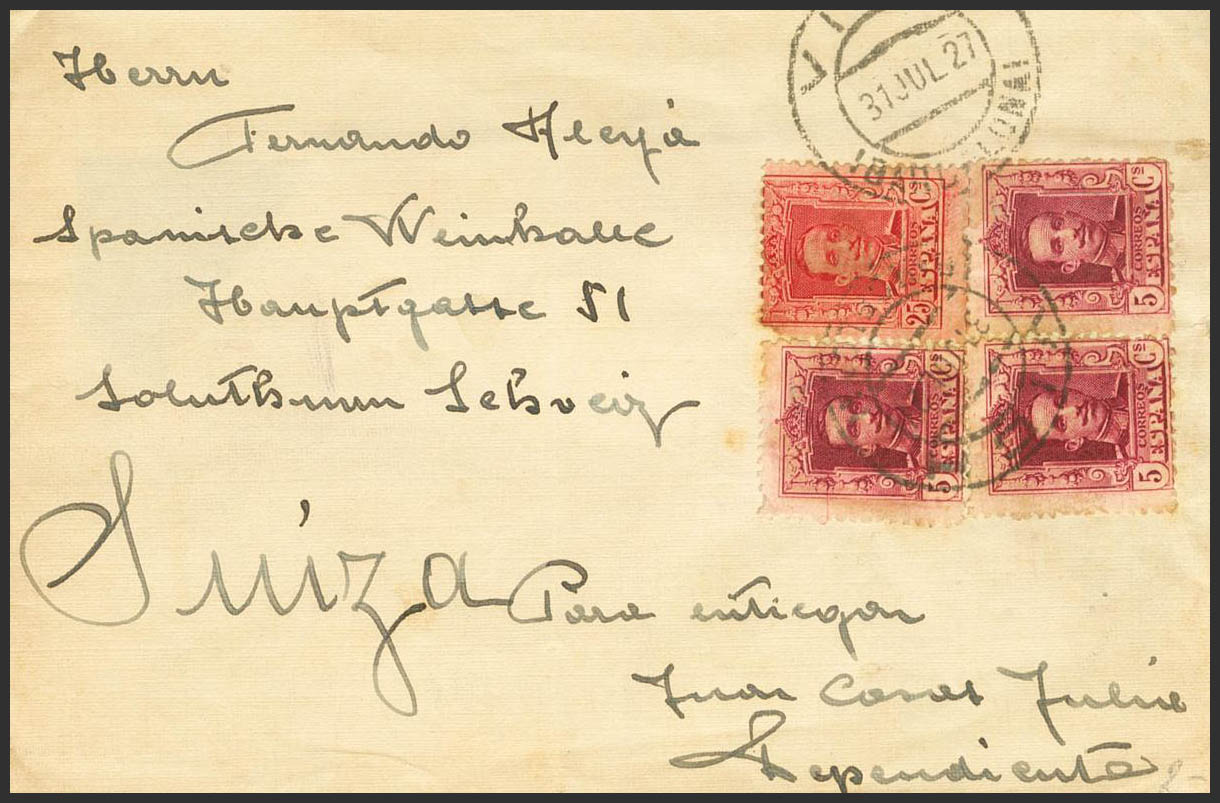 Herrn
Fernando Aleyá
Spanische Weinhalle
Hauptgasse 51
Soluthurn Schveiz
Suiza
Para entregar
Juan Casas Julié
Dependiente
31 JUL 27
(BARCELONA)
25 Cs
CORREOS
ESPAÑA
5 Cs
CORREOS
ESPAÑA
5 Cs
CORREOS
ESPAÑA
5 Cs
CORREOS
ESPAÑA